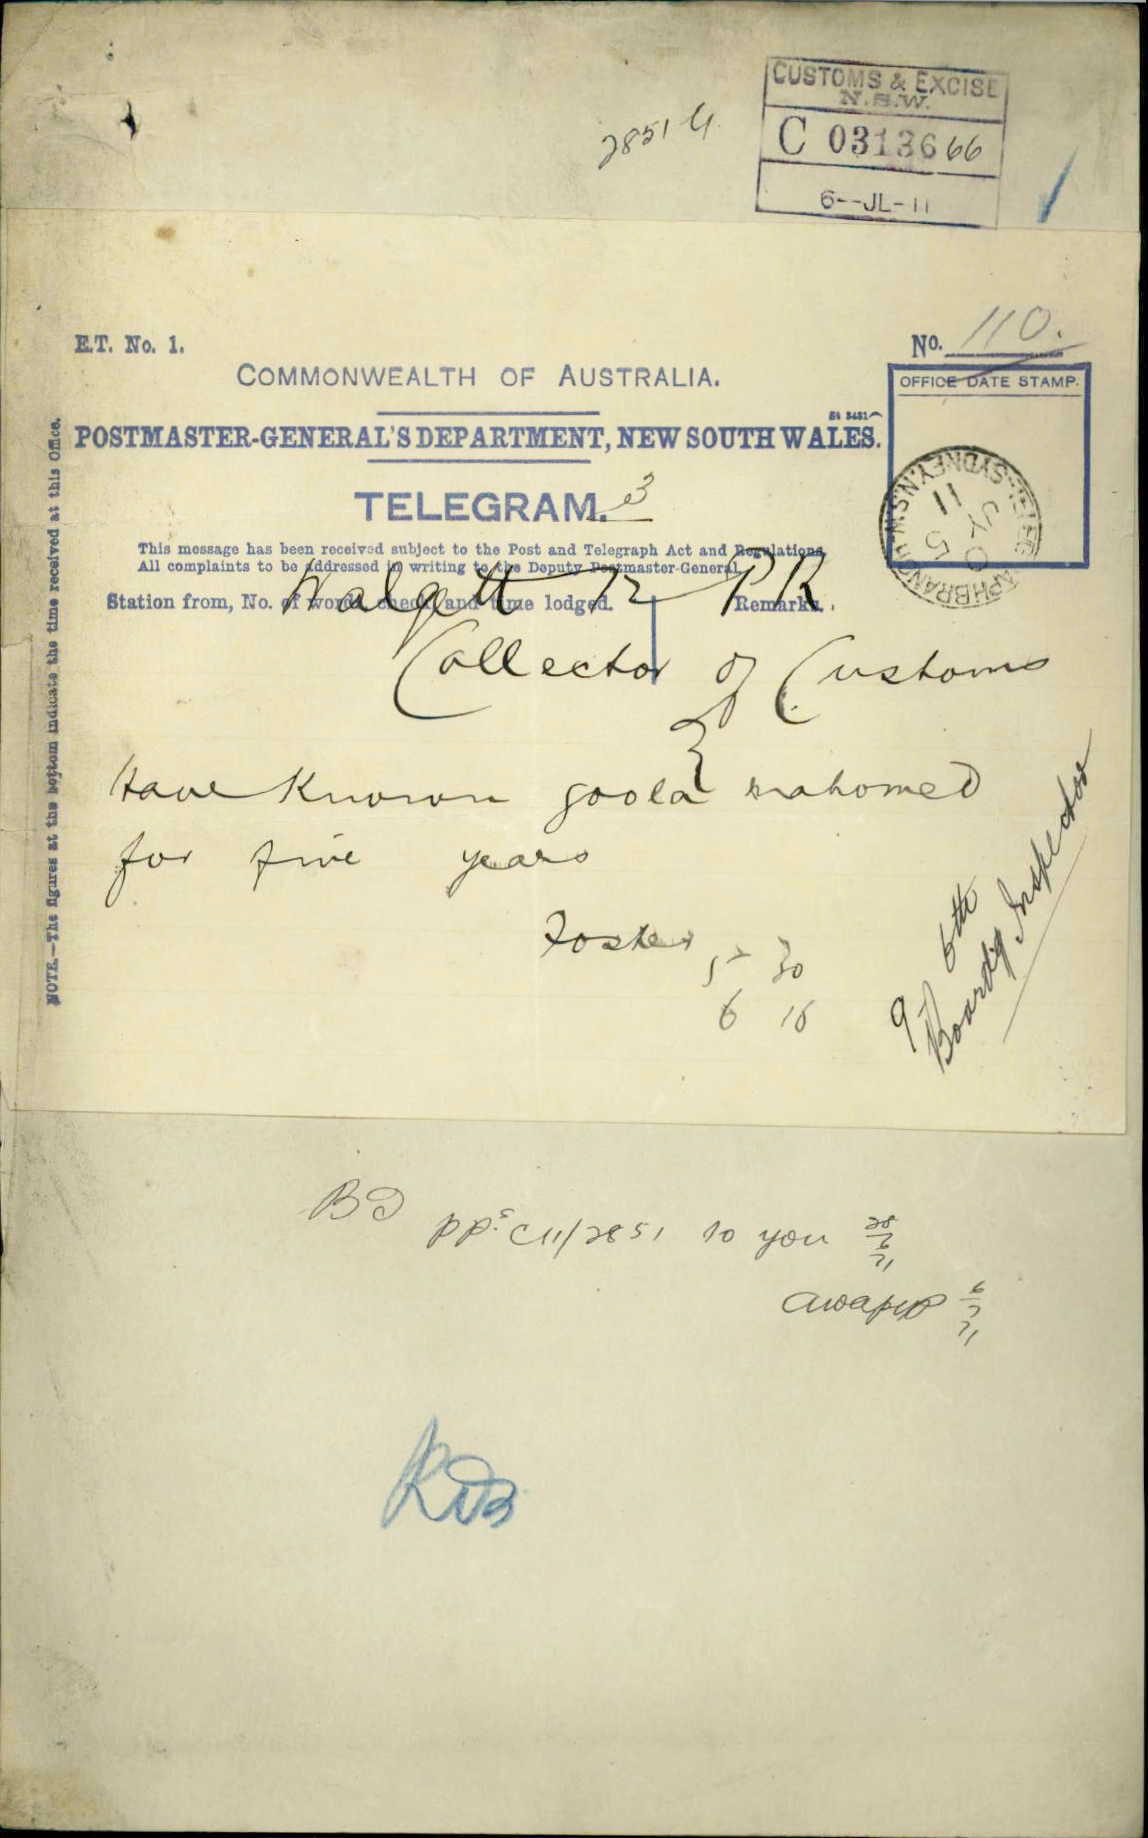 2851 G
CUSTOMS & EXCISE
N.S.W.
C 0313666
6--JL-11
E.T. No. 1.
No. 110.
COMMONWEALTH OF AUSTRALIA.
OFFICE DATE STAMP.
POSTMASTER-GENERAL'S DEPARTMENT, NEW SOUTH WALES.
TELEGRAM.
SYDNEY. N.S.W.
11
JY
5
This message has been received subject to the Post and Telegraph Act and Regulations.
All complaints to be addressed in writing to the Deputy Postmaster-General.
Station from, No. of words, check, and time lodged. Remarks.
Walgett 12 PR
Collector of Customs
Have known goola mahomed
for five years
Foster
5 30
6 16
9 6th
Boardg Inspector
NOTE.—The figures at the bottom indicate the time received at this Office.
BI
pps C11/2851 to you 28/6/11
6/7/11